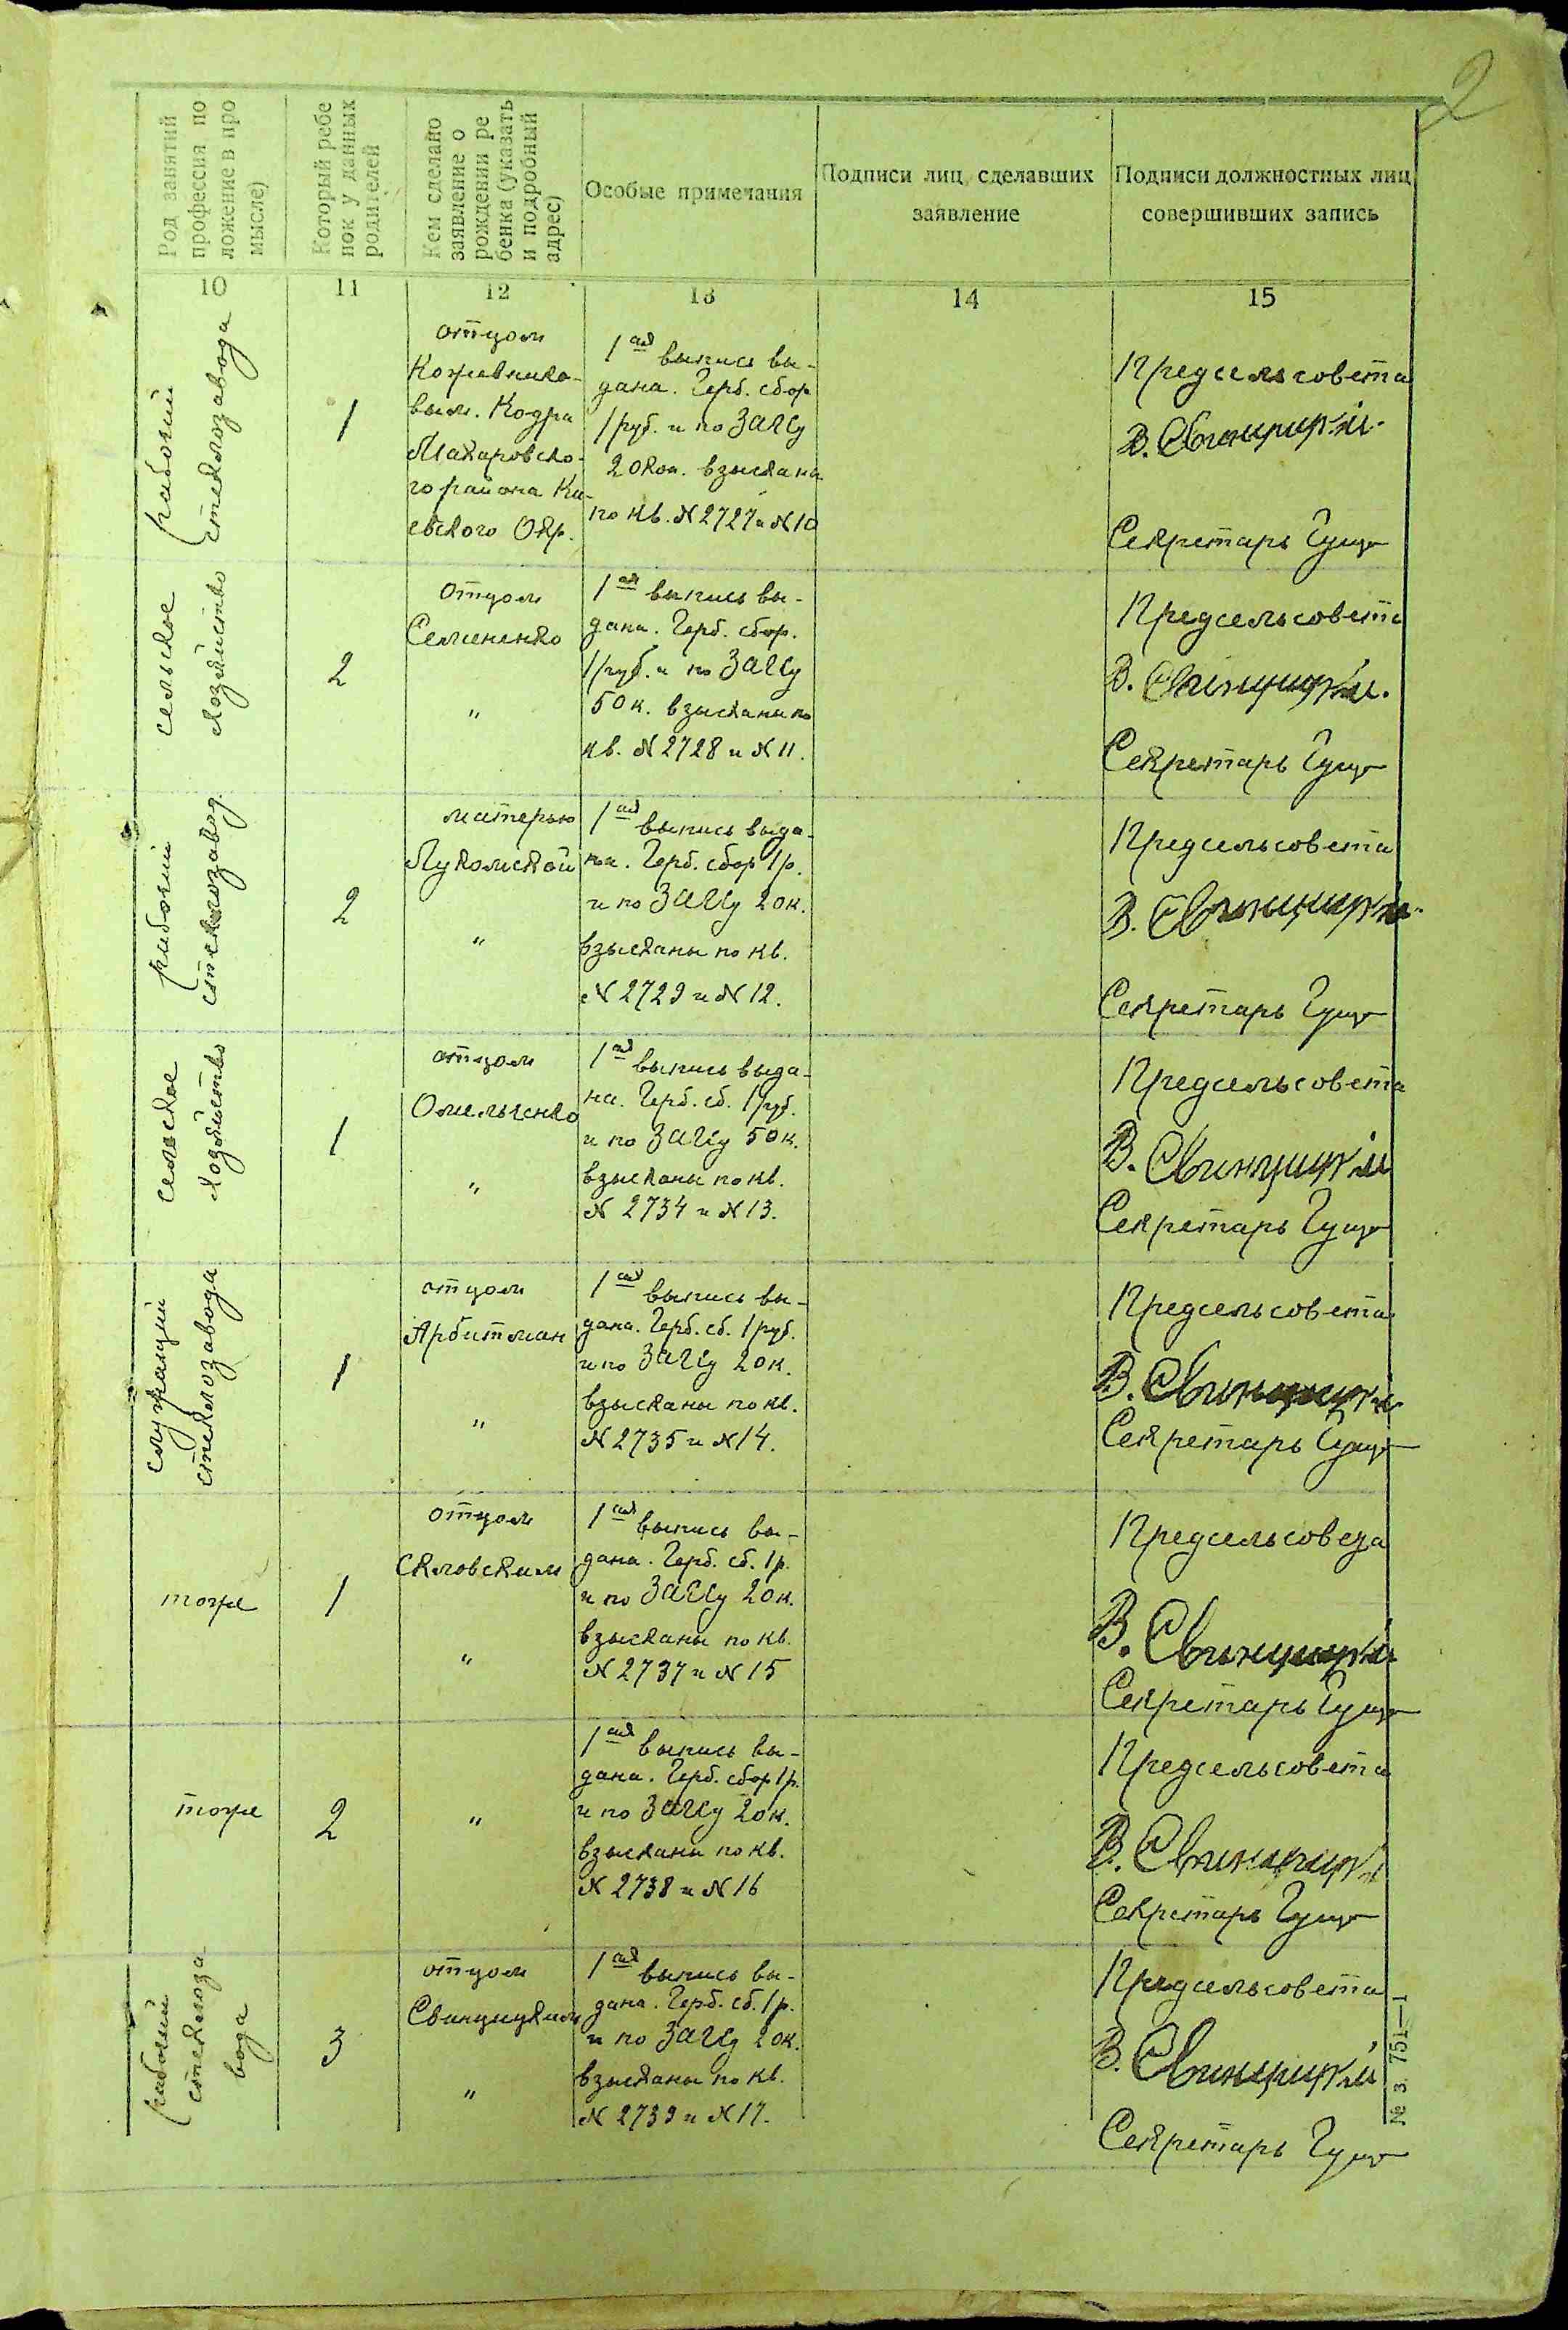 2
Род занятий
профессия по
ложение в про
мысле)
Который ребе
нок у данных
родителей
Кем сделано
заявление о
рождении ре
бенка (указать
и подробный
адрес)
Особые примечания
Подписи лиц сделавших
заявление
Подписи должностных лиц
совершивших запись
10
11
12
13
14
15
рабочий
стеклозавода
1
отцом
Кожевнико-
вым. Кодра
Макаровско-
го района Ки-
евского Окр.
1ая выпись вы-
дана. Герб. сбор
1 руб. и по ЗАГСу
20 коп. взысканы
по кв. N 2727 и N 10
Предсельсовета
В. Свинцицкий
Секретарь
сельское
хозяйство
2
отцом
Семененко
"
1ая выпись вы-
дана. Герб. сбор.
1 руб. и по ЗАГСу
50 к. взысканы по
кв. N 2728 и N 11.
Предсельсовета
В. Свинцицкий.
Секретарь
рабочий
стеклозавод.
2
матерью
Лукомской
"
1ая выпись выда-
на. Герб. сбор 1 р.
и по ЗАГСу 20 к.
взысканы по кв.
N 2729 и N 12.
Предсельсовета
В. Свинцицкий
Секретарь
сельское
хозяйство
1
отцом
Омельченко
"
1ая выпись выда-
на. Герб. сб. 1 руб.
и по ЗАГСу 50 к.
взысканы по кв.
N 2734 и N 13.
Предсельсовета
В. Свинцицкий
Секретарь
служащий
стеклозавода
1
отцом
Арбитман
"
1ая выпись вы-
дана. Герб. сб. 1 руб.
и по ЗАГСу 20 к.
взысканы по кв.
N 2735 и N 14.
Предсельсовета
В. Свинцицкий
Секретарь
тоже
1
отцом
Скловским
"
1ая выпись вы-
дана. Герб. сб. 1 р.
и по ЗАГСу 20 к.
взысканы по кв.
N 2737 и N 15
Предсельсовета
В. Свинцицкий
Секретарь
тоже
2
"
1ая выпись вы-
дана. Герб. сбор 1 р.
и по ЗАГСу 20 к.
взысканы по кв.
N 2738 и N 16
Предсельсовета
В. Свинцицкий
Секретарь
рабочий
стеклоза
вода
3
отцом
Свинцицким
"
1ая выпись вы-
дана. Герб. сб. 1 р.
и по ЗАГСу 20 к.
взысканы по кв.
N 2739 и N 17.
Предсельсовета
В. Свинцицкий
Секретарь
№ З. 751—1